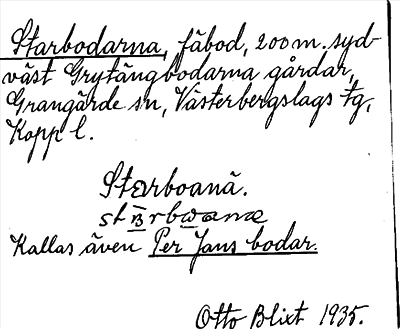 Starbodarna, fäbod, 200 m. syd-
väst Grytängbodarna gårdar,
Grangärde sn, Västerbergslags tg,
Kopp l.
Starboanä.
Kallas även Per Jans bodar.
Otto Blixt 1935.